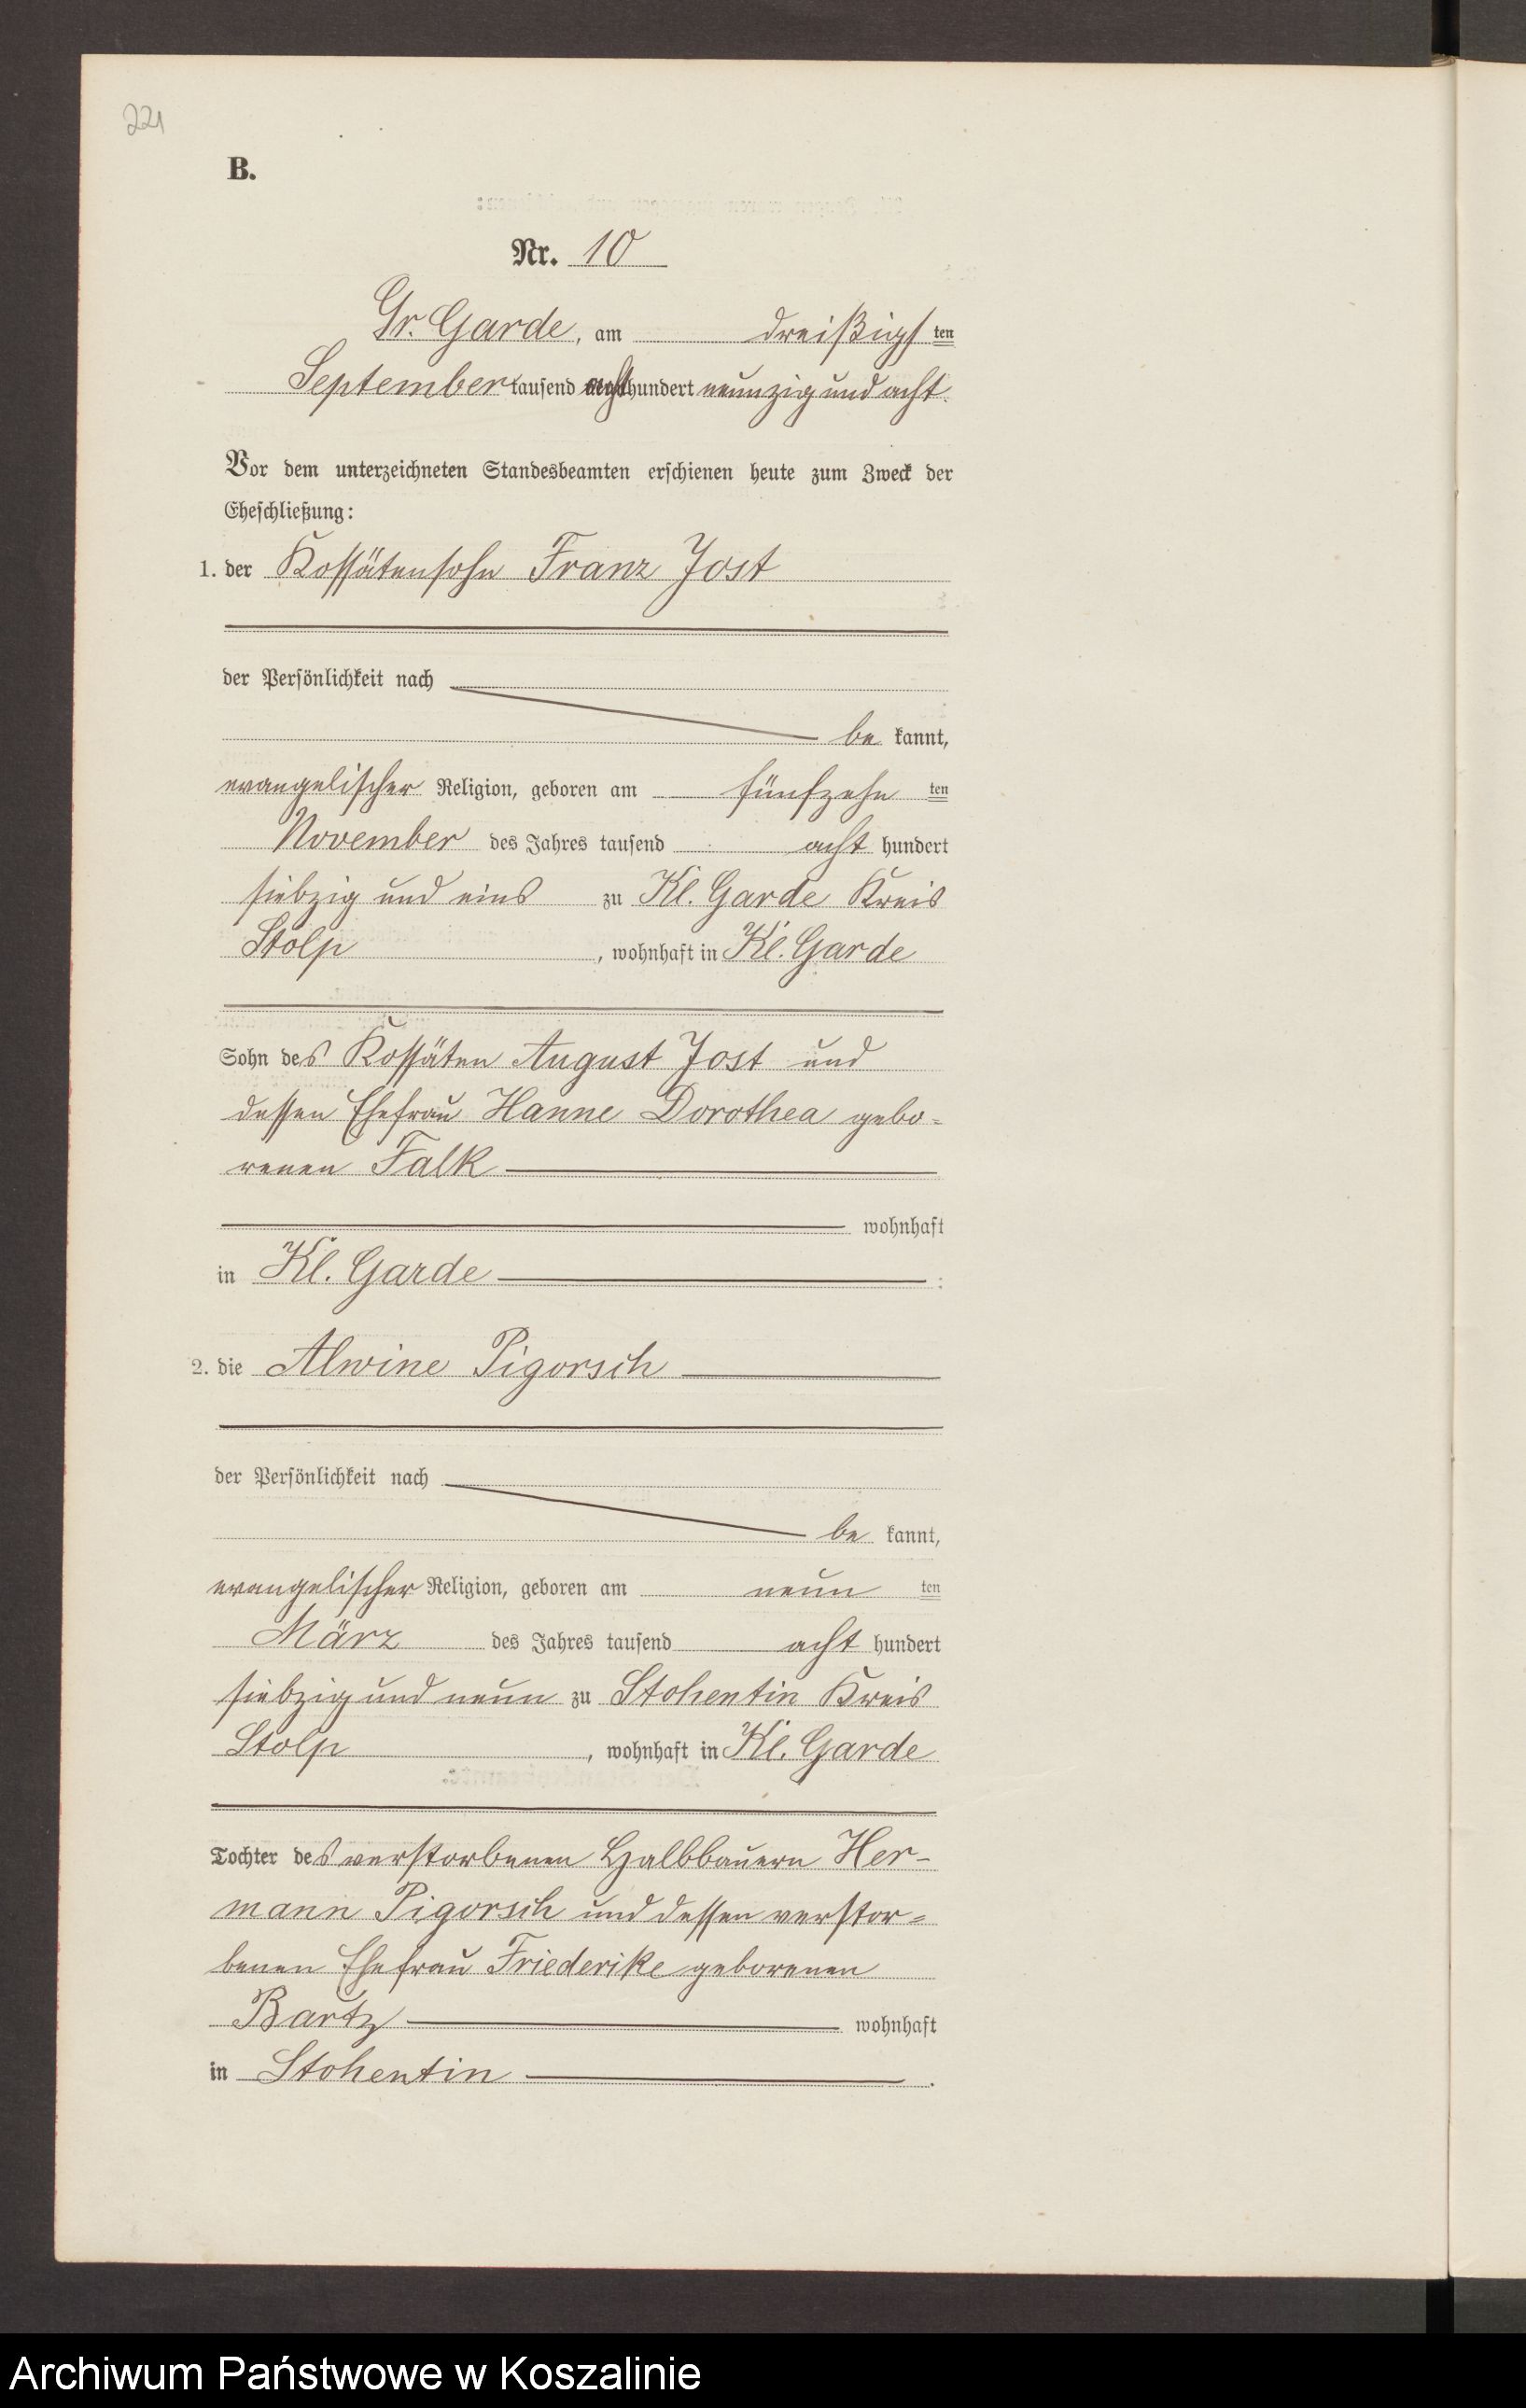 221
B.
Nr. 10
Gr. Garde, am dreißigsten
September tausend acht hundert neunzig und acht.
Vor dem unterzeichneten Standesbeamten erschienen heute zum Zweck der
Eheschließung:
1. der Kossätensohn Franz Jost
der Persönlichkeit nach
be kannt,
evangelischer Religion, geboren am fünfzehn ten
November des Jahres tausend acht hundert
siebzig und eins zu Kl. Garde Kreis
Stolp, wohnhaft in Kl. Garde
Sohn des Kossäten August Jost und
dessen Ehefrau Hanne Dorothea gebo-
renen Falk
wohnhaft
in Kl. Garde :
2. die Alwine Pigorsch
der Persönlichkeit nach
be kannt,
evangelischer Religion, geboren am neun ten
März des Jahres tausend acht hundert
siebzig und neun zu Stohentin Kreis
Stolp, wohnhaft in Kl. Garde
Tochter des verstorbenen Halbbauern Her-
mann Pigorsch und dessen verstor-
benen Ehefrau Friederike geborenen
Bartz wohnhaft
in Stohentin .
Archiwum Państwowe w Koszalinie